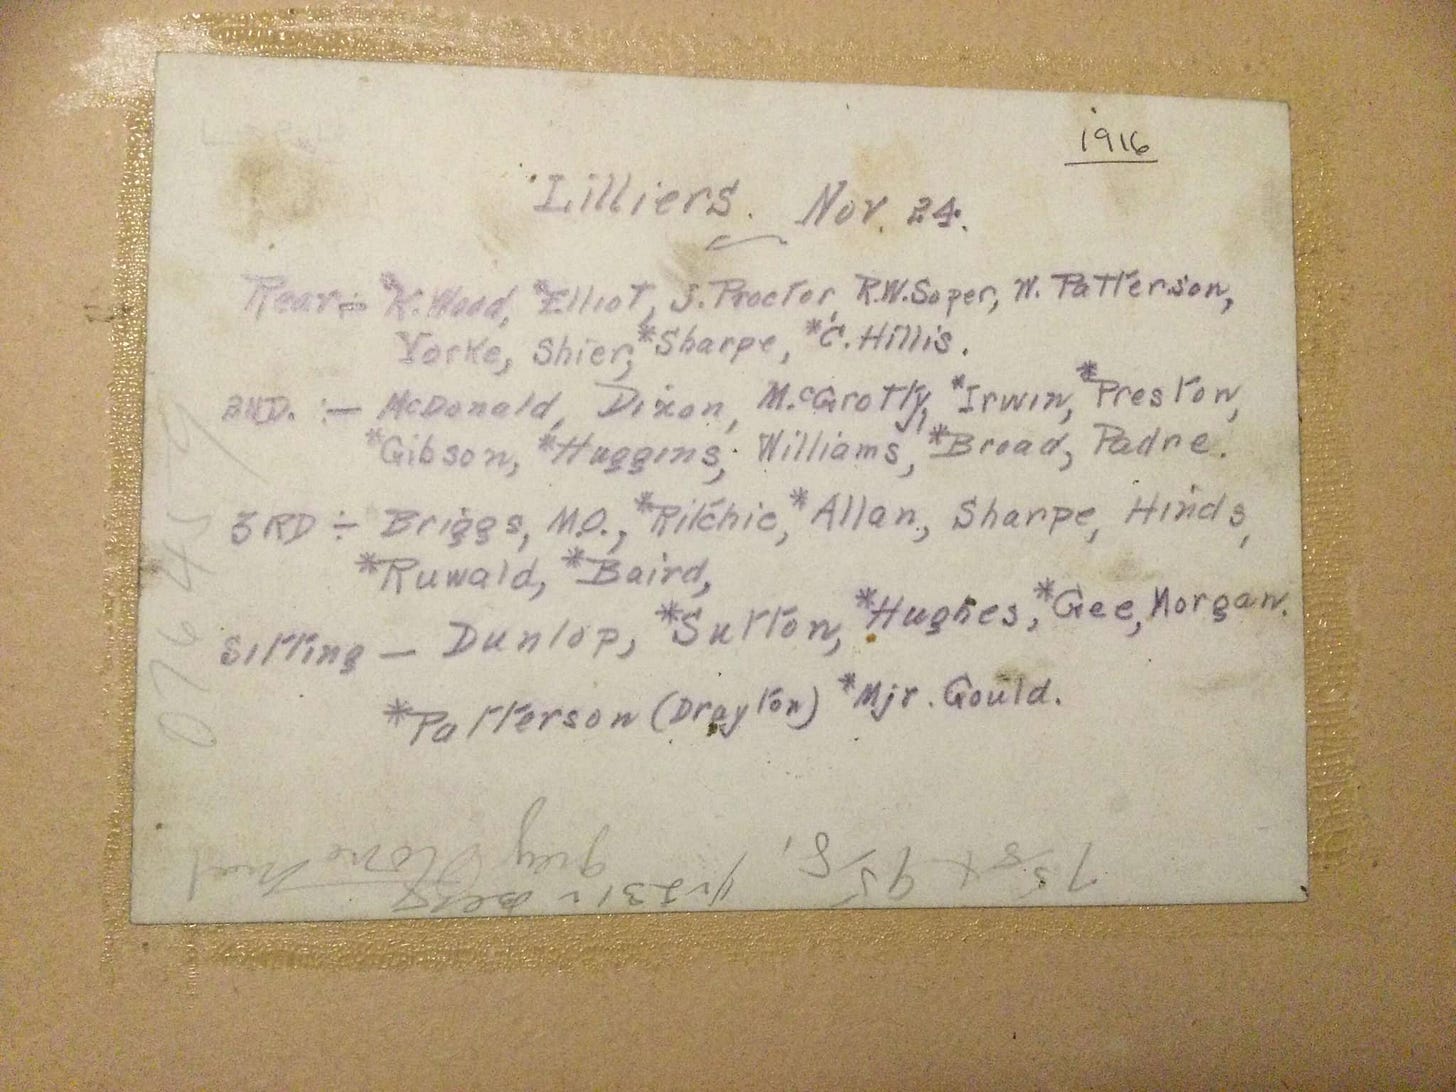 1916
Lilliers. Nov. 24.
Rear÷ *K. Wood, *Elliot, J. Proctor, R.W. Soper, W. Patterson,
Yorke, Shier, *Sharpe, *C. Hillis.
2ND. :- McDonald, Dixon, McGrotty, *Irwin, *Preston,
*Gibson, *Huggins, Williams, *Broad, Padre.
3RD ÷ Briggs, M.O., *Ritchie, *Allan, Sharpe, Hinds,
*Ruwald, *Baird,
Sitting — Dunlop, *Sutton, *Hughes, *Gee, Morgan.
*Patterson (Drayton) *Mjr. Gould.